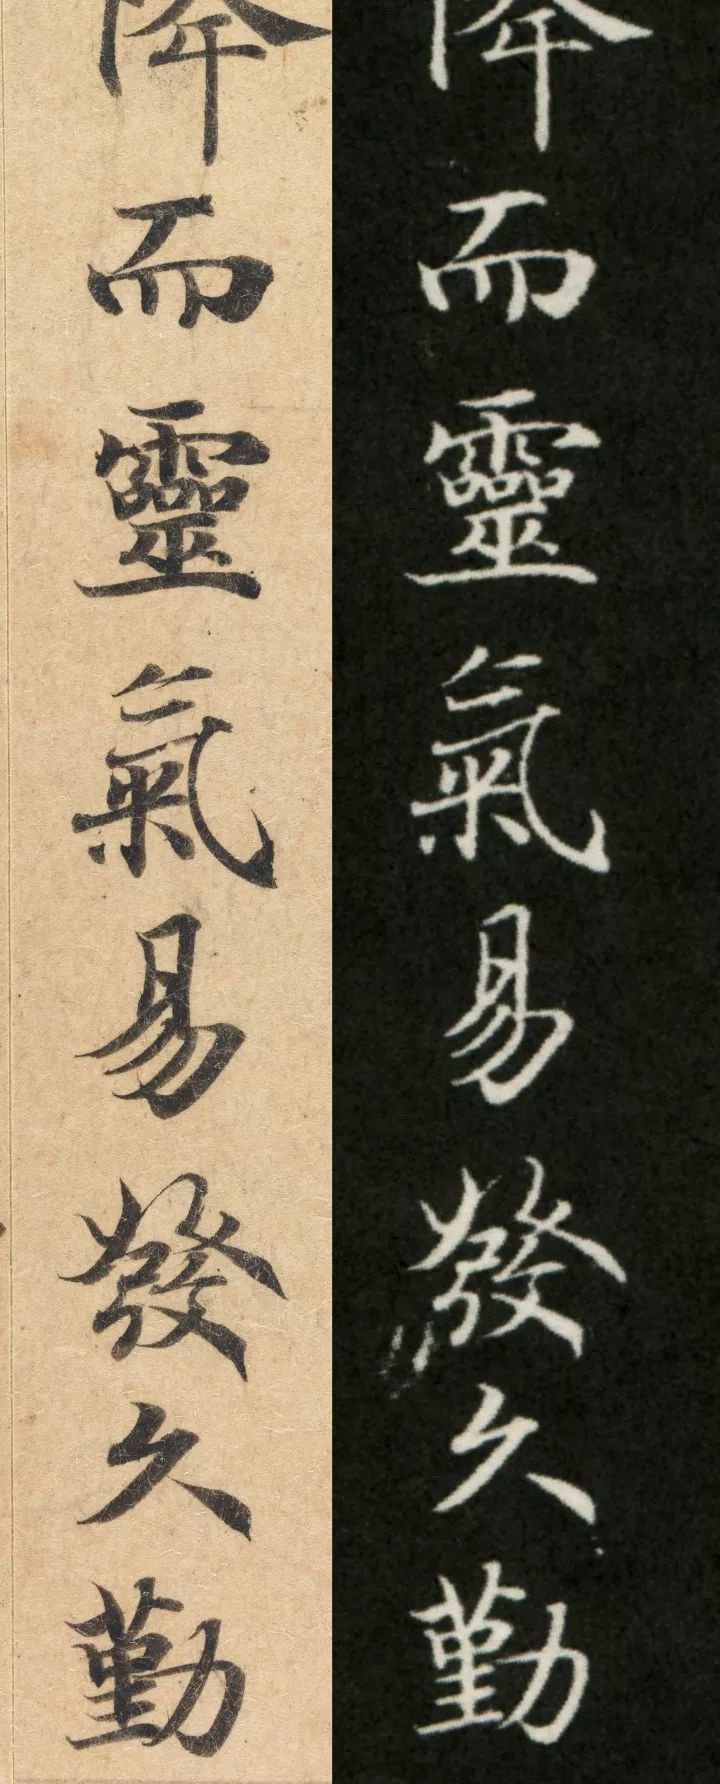 降而靈氣易發久勤
降而靈氣易發久勤